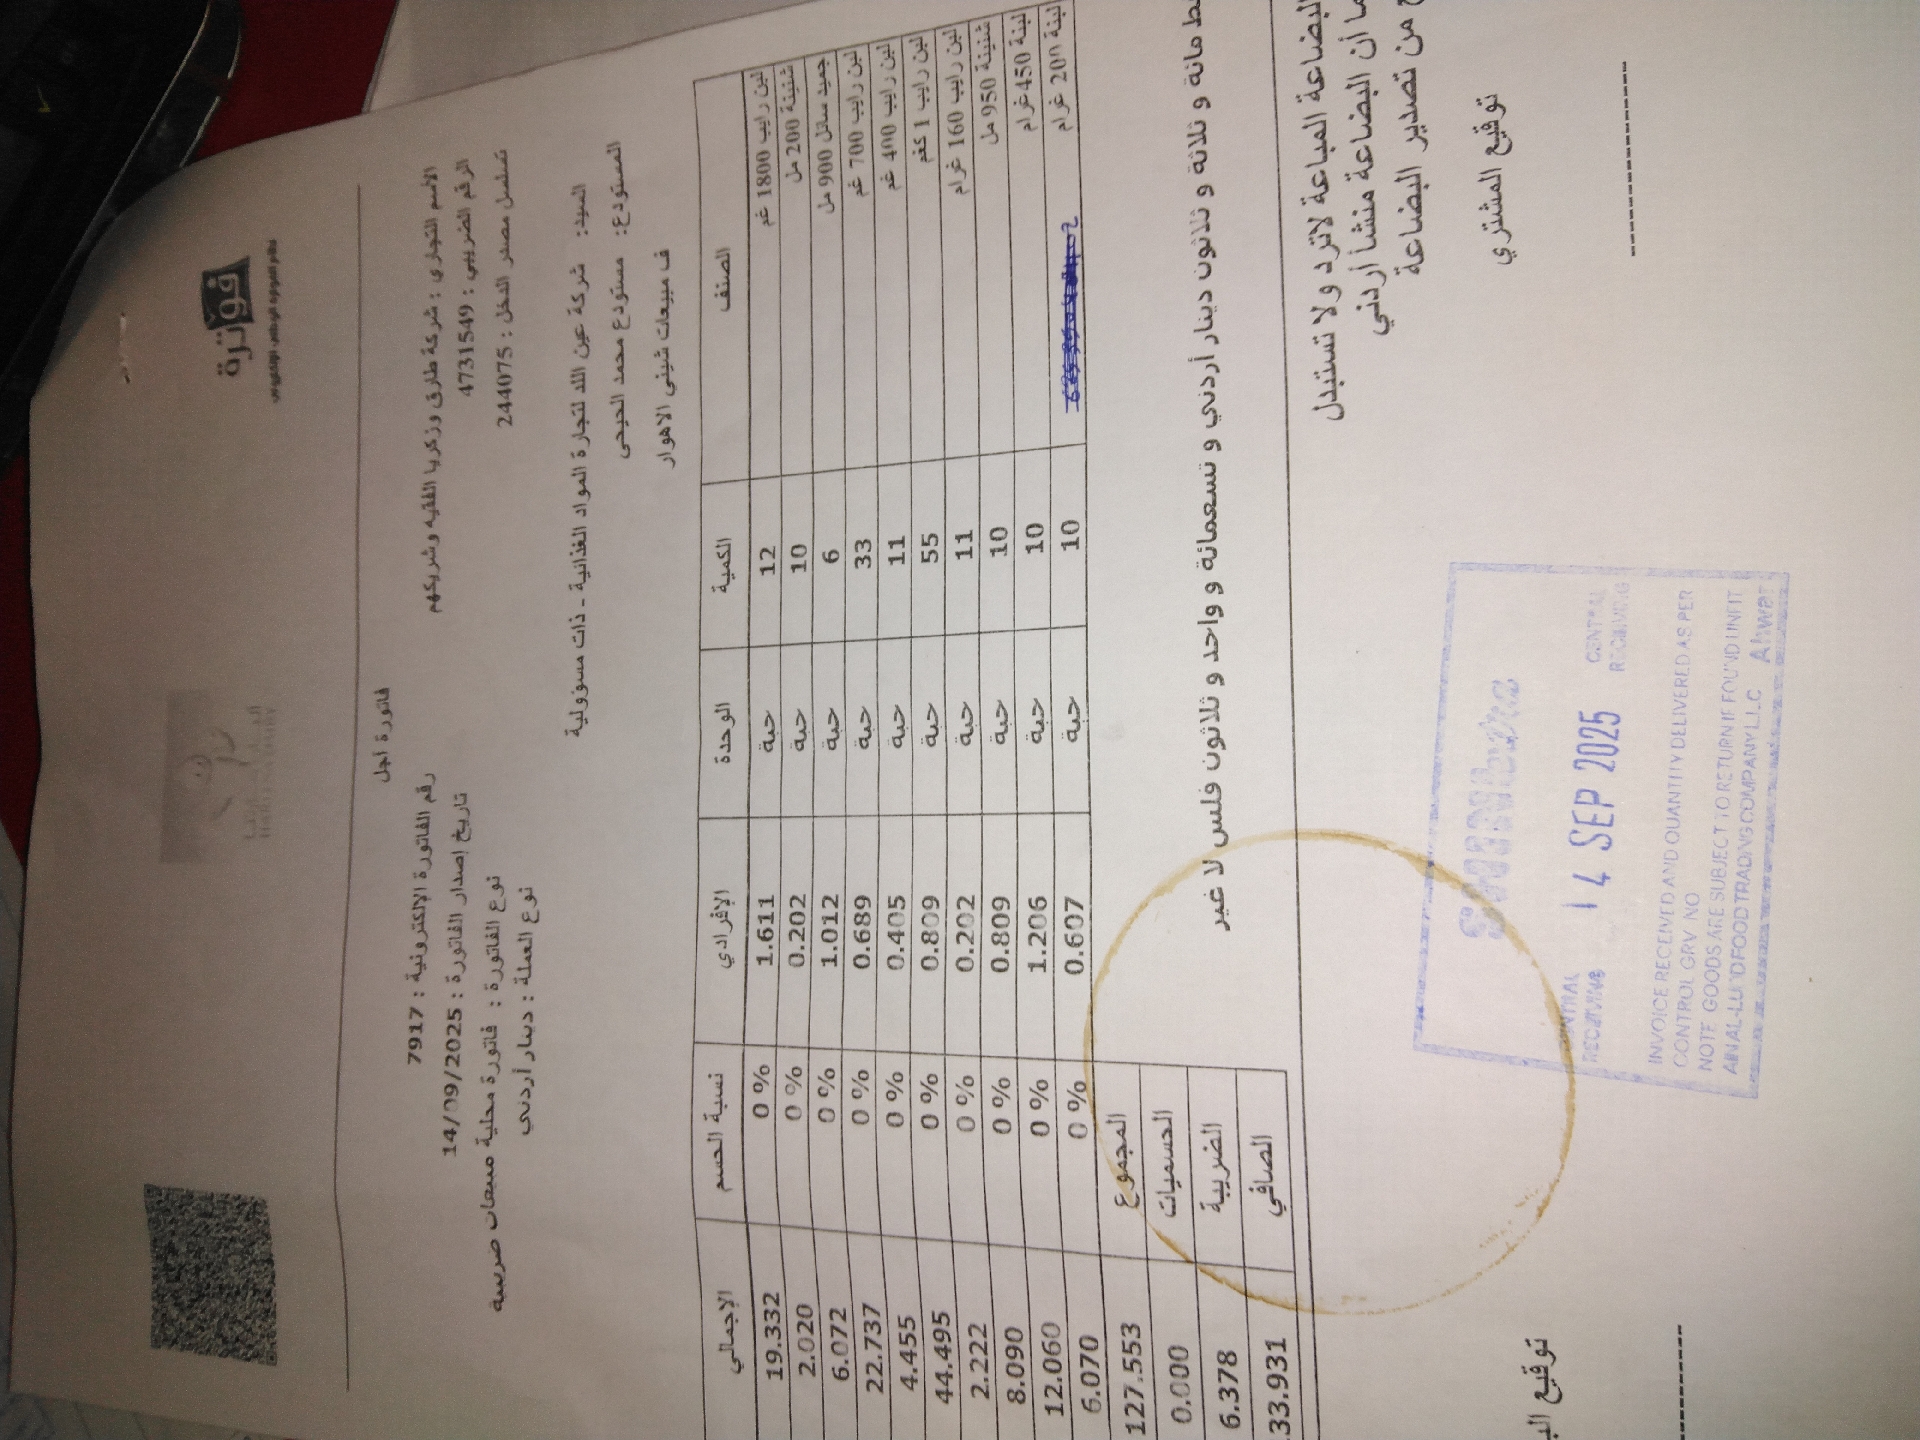 فوترة
نظام الفوترة الوطني الإلكتروني
فاتورة اجل
الاسم التجاري : شركة طارق وزكريا الفقيه وشريكهم
الرقم الضريبي : 4731549
تسلسل مصدر الدخل : 244075
رقم الفاتورة الإلكترونية : 7917
تاريخ إصدار الفاتورة : 14/09/2025
نوع الفاتورة : فاتورة محلية مبيعات ضريبية
نوع العملة : دينار أردني
السيد: شركة عين اللد لتجارة المواد الغذائية - ذات مسؤولية
المستودع: مستودع محمد الحيحى
ف مبيعات شيني الاهوار
الصنف الكمية الوحدة الإفرادي نسبة الحسم الإجمالي
لبن رايب 1800 غم 12 حبة 1.611 0 % 19.332
شنينة 200 مل 10 حبة 0.202 0 % 2.020
جميد سائل 900 مل 6 حبة 1.012 0 % 6.072
لبن رايب 700 غم 33 حبة 0.689 0 % 22.737
لبن رايب 400 غم 11 حبة 0.405 0 % 4.455
لبن رايب 1 كغم 55 حبة 0.809 0 % 44.495
لبن رايب 160 غرام 11 حبة 0.202 0 % 2.222
شنينة 950 مل 10 حبة 0.809 0 % 8.090
لبنة 450 غرام 10 حبة 1.206 0 % 12.060
لبنة 200 غرام 10 حبة 0.607 0 % 6.070
المجموع 127.553
الحسميات 0.000
الضريبة 6.378
الصافي 33.931
مائة و ثلاثة و ثلاثون دينار أردني و تسعمائة و واحد و ثلاثون فلس لا غير
البضاعة المباعة لاترد ولا تستبدل
أن البضاعة منشأ أردني
من تصدير البضاعة
توقيع المشتري
توقيع
CENTRAL RECEIVING
14 SEP 2025
CENTRAL RECEIVING
INVOICE RECEIVED AND QUANTITY DELIVERED AS PER
CONTROL GRV NO
NOTE GOODS ARE SUBJECT TO RETURN IF FOUND UNFIT
AIN AL-LUDD FOOD TRADING COMPANY L.L.C Ahwar